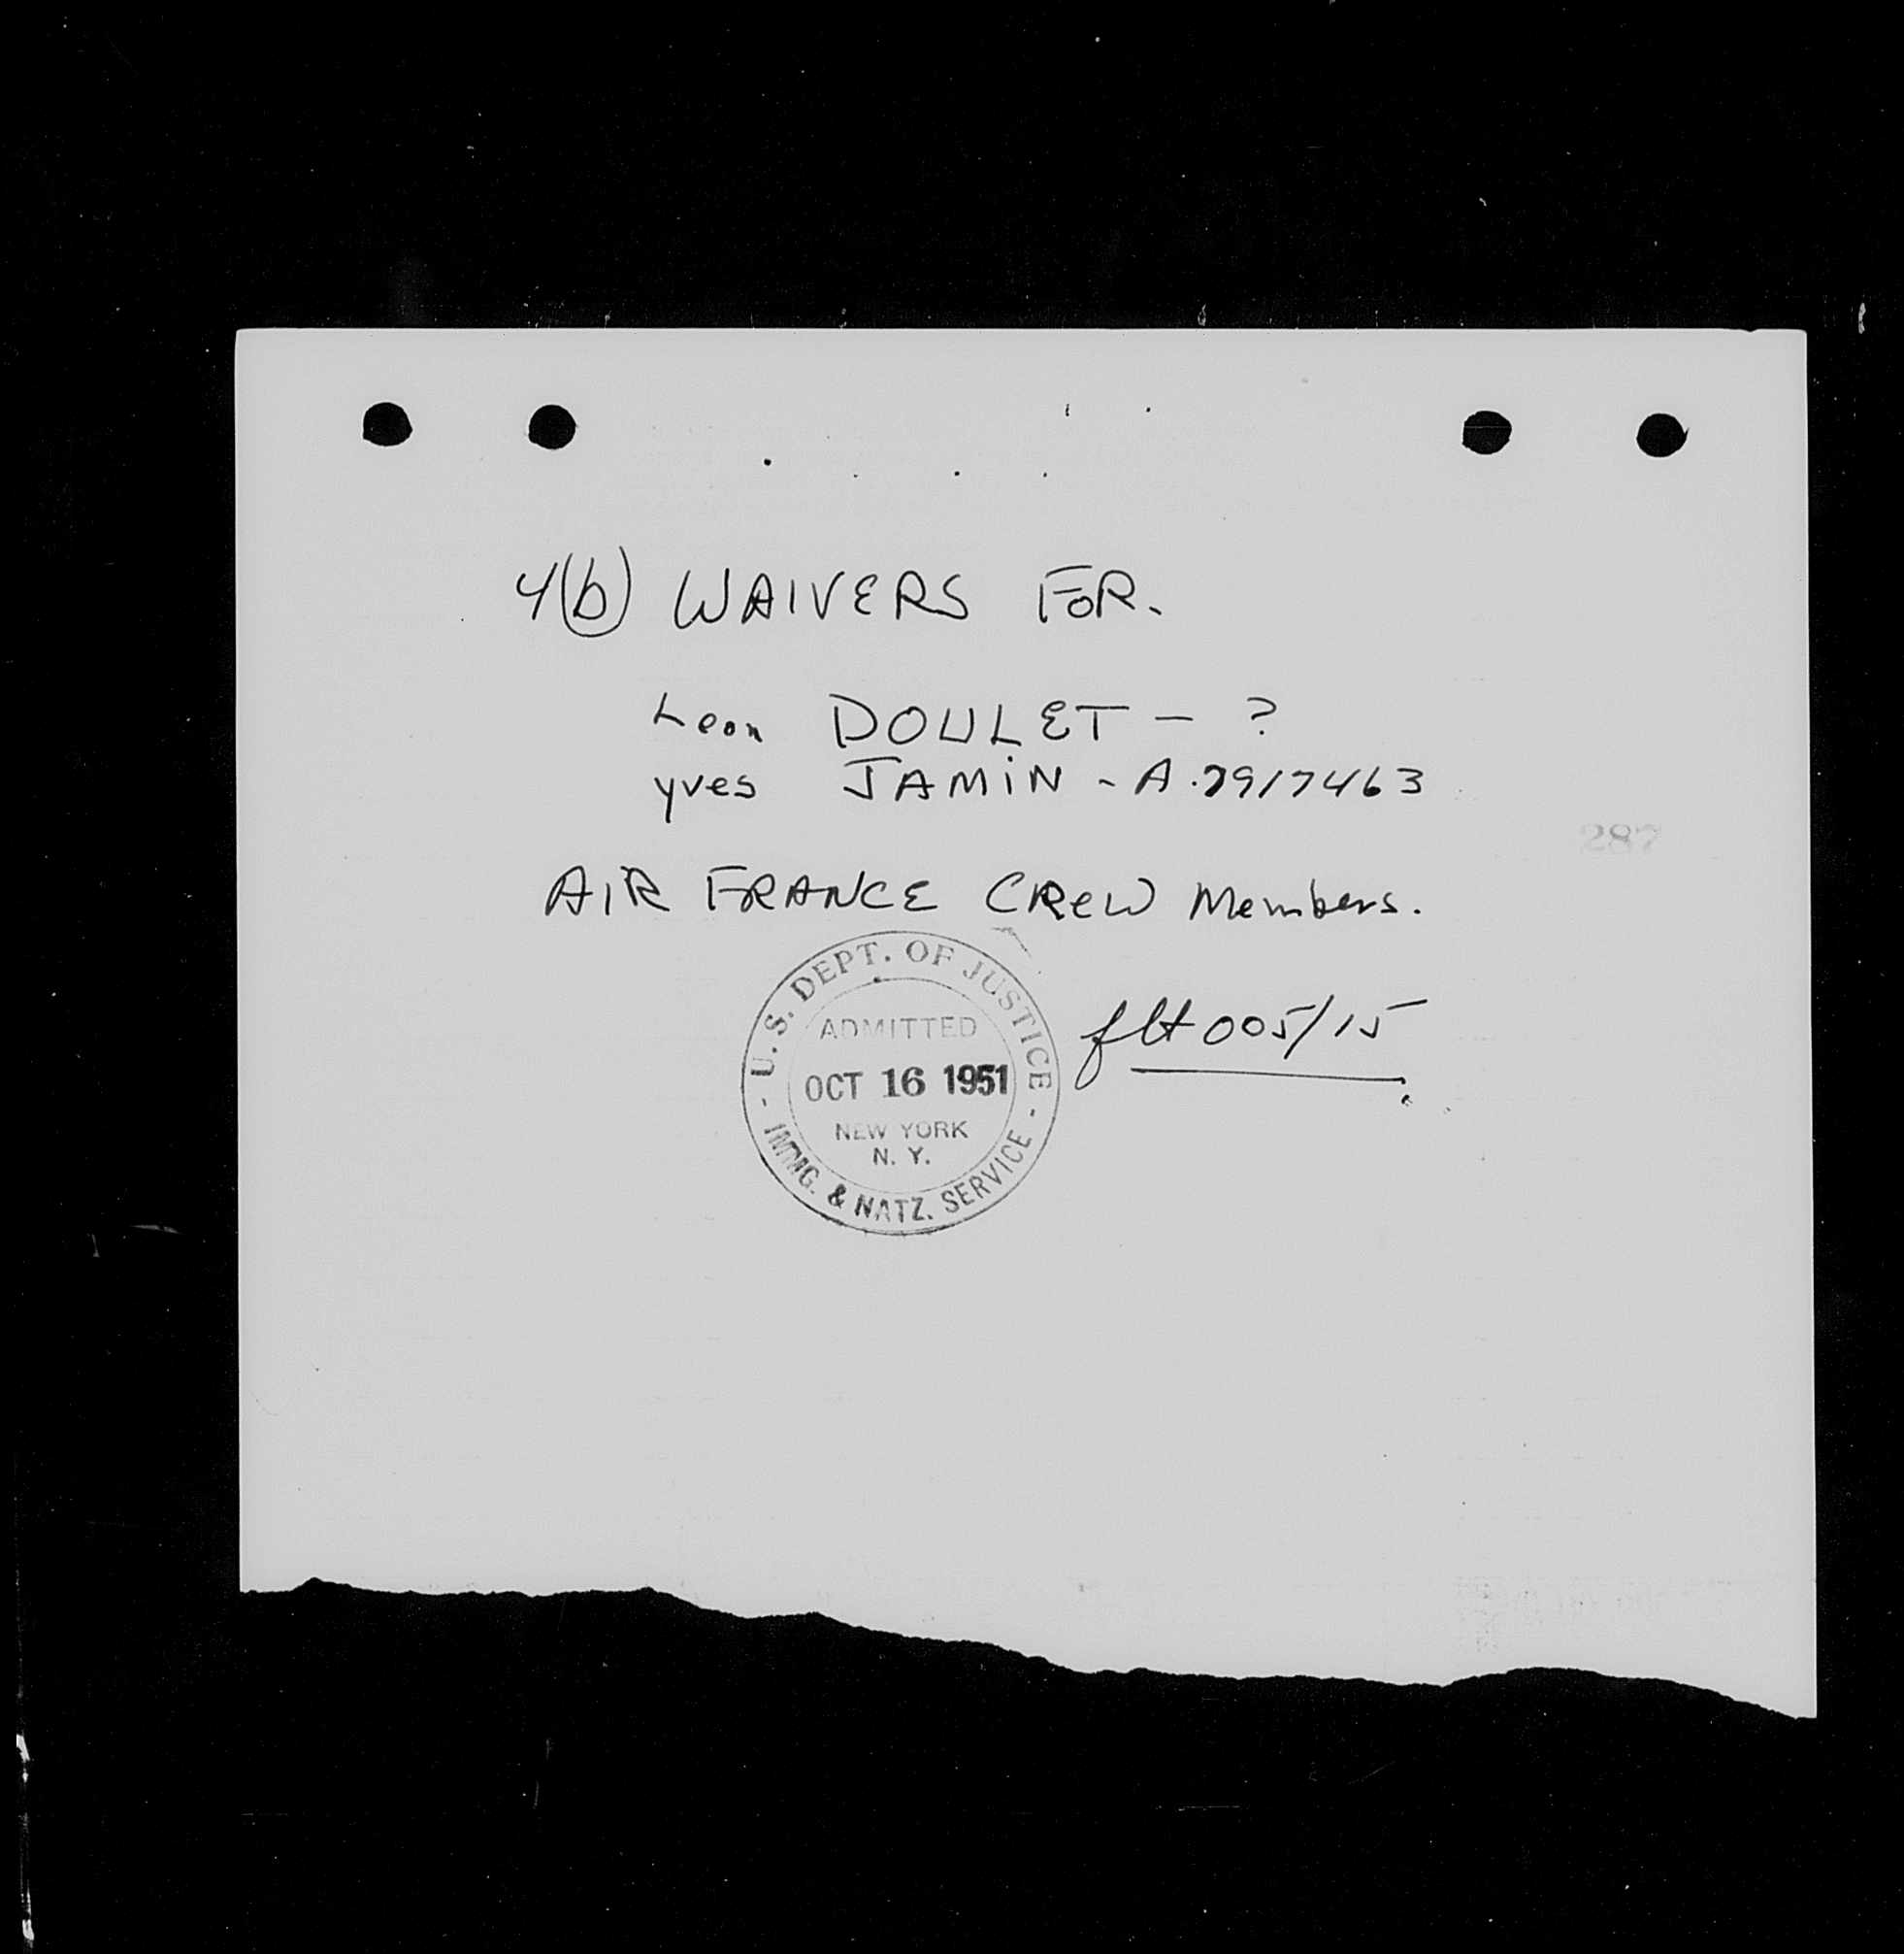 4(b) WAIVERS FOR.
Leon DOULET - ?
yves JAMIN - A.7917463
287
AIR FRANCE CREW Members.
U.S. DEPT. OF JUSTICE
ADMITTED
OCT 16 1951
NEW YORK
N. Y.
- IMMG. & NATZ. SERVICE -
flt 005/15